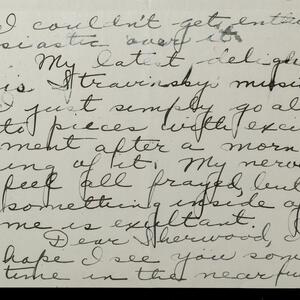 I couldn't get enthu
siastic over it.
My latest deligh
is Stravinsky musi
I just simply go al
to pieces with exci
ment after a morn
ing of it. My nerv
feel all frayed, but
something inside of
me is exultant.
Dear Sherwood, I
hope I see you som
time in the near fu